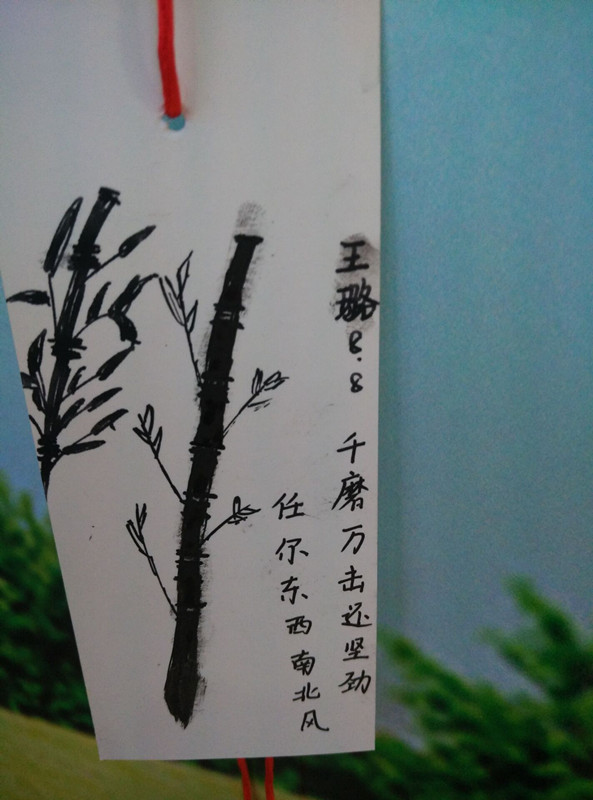 王璐8.8
千磨万击还坚劲
任尔东西南北风